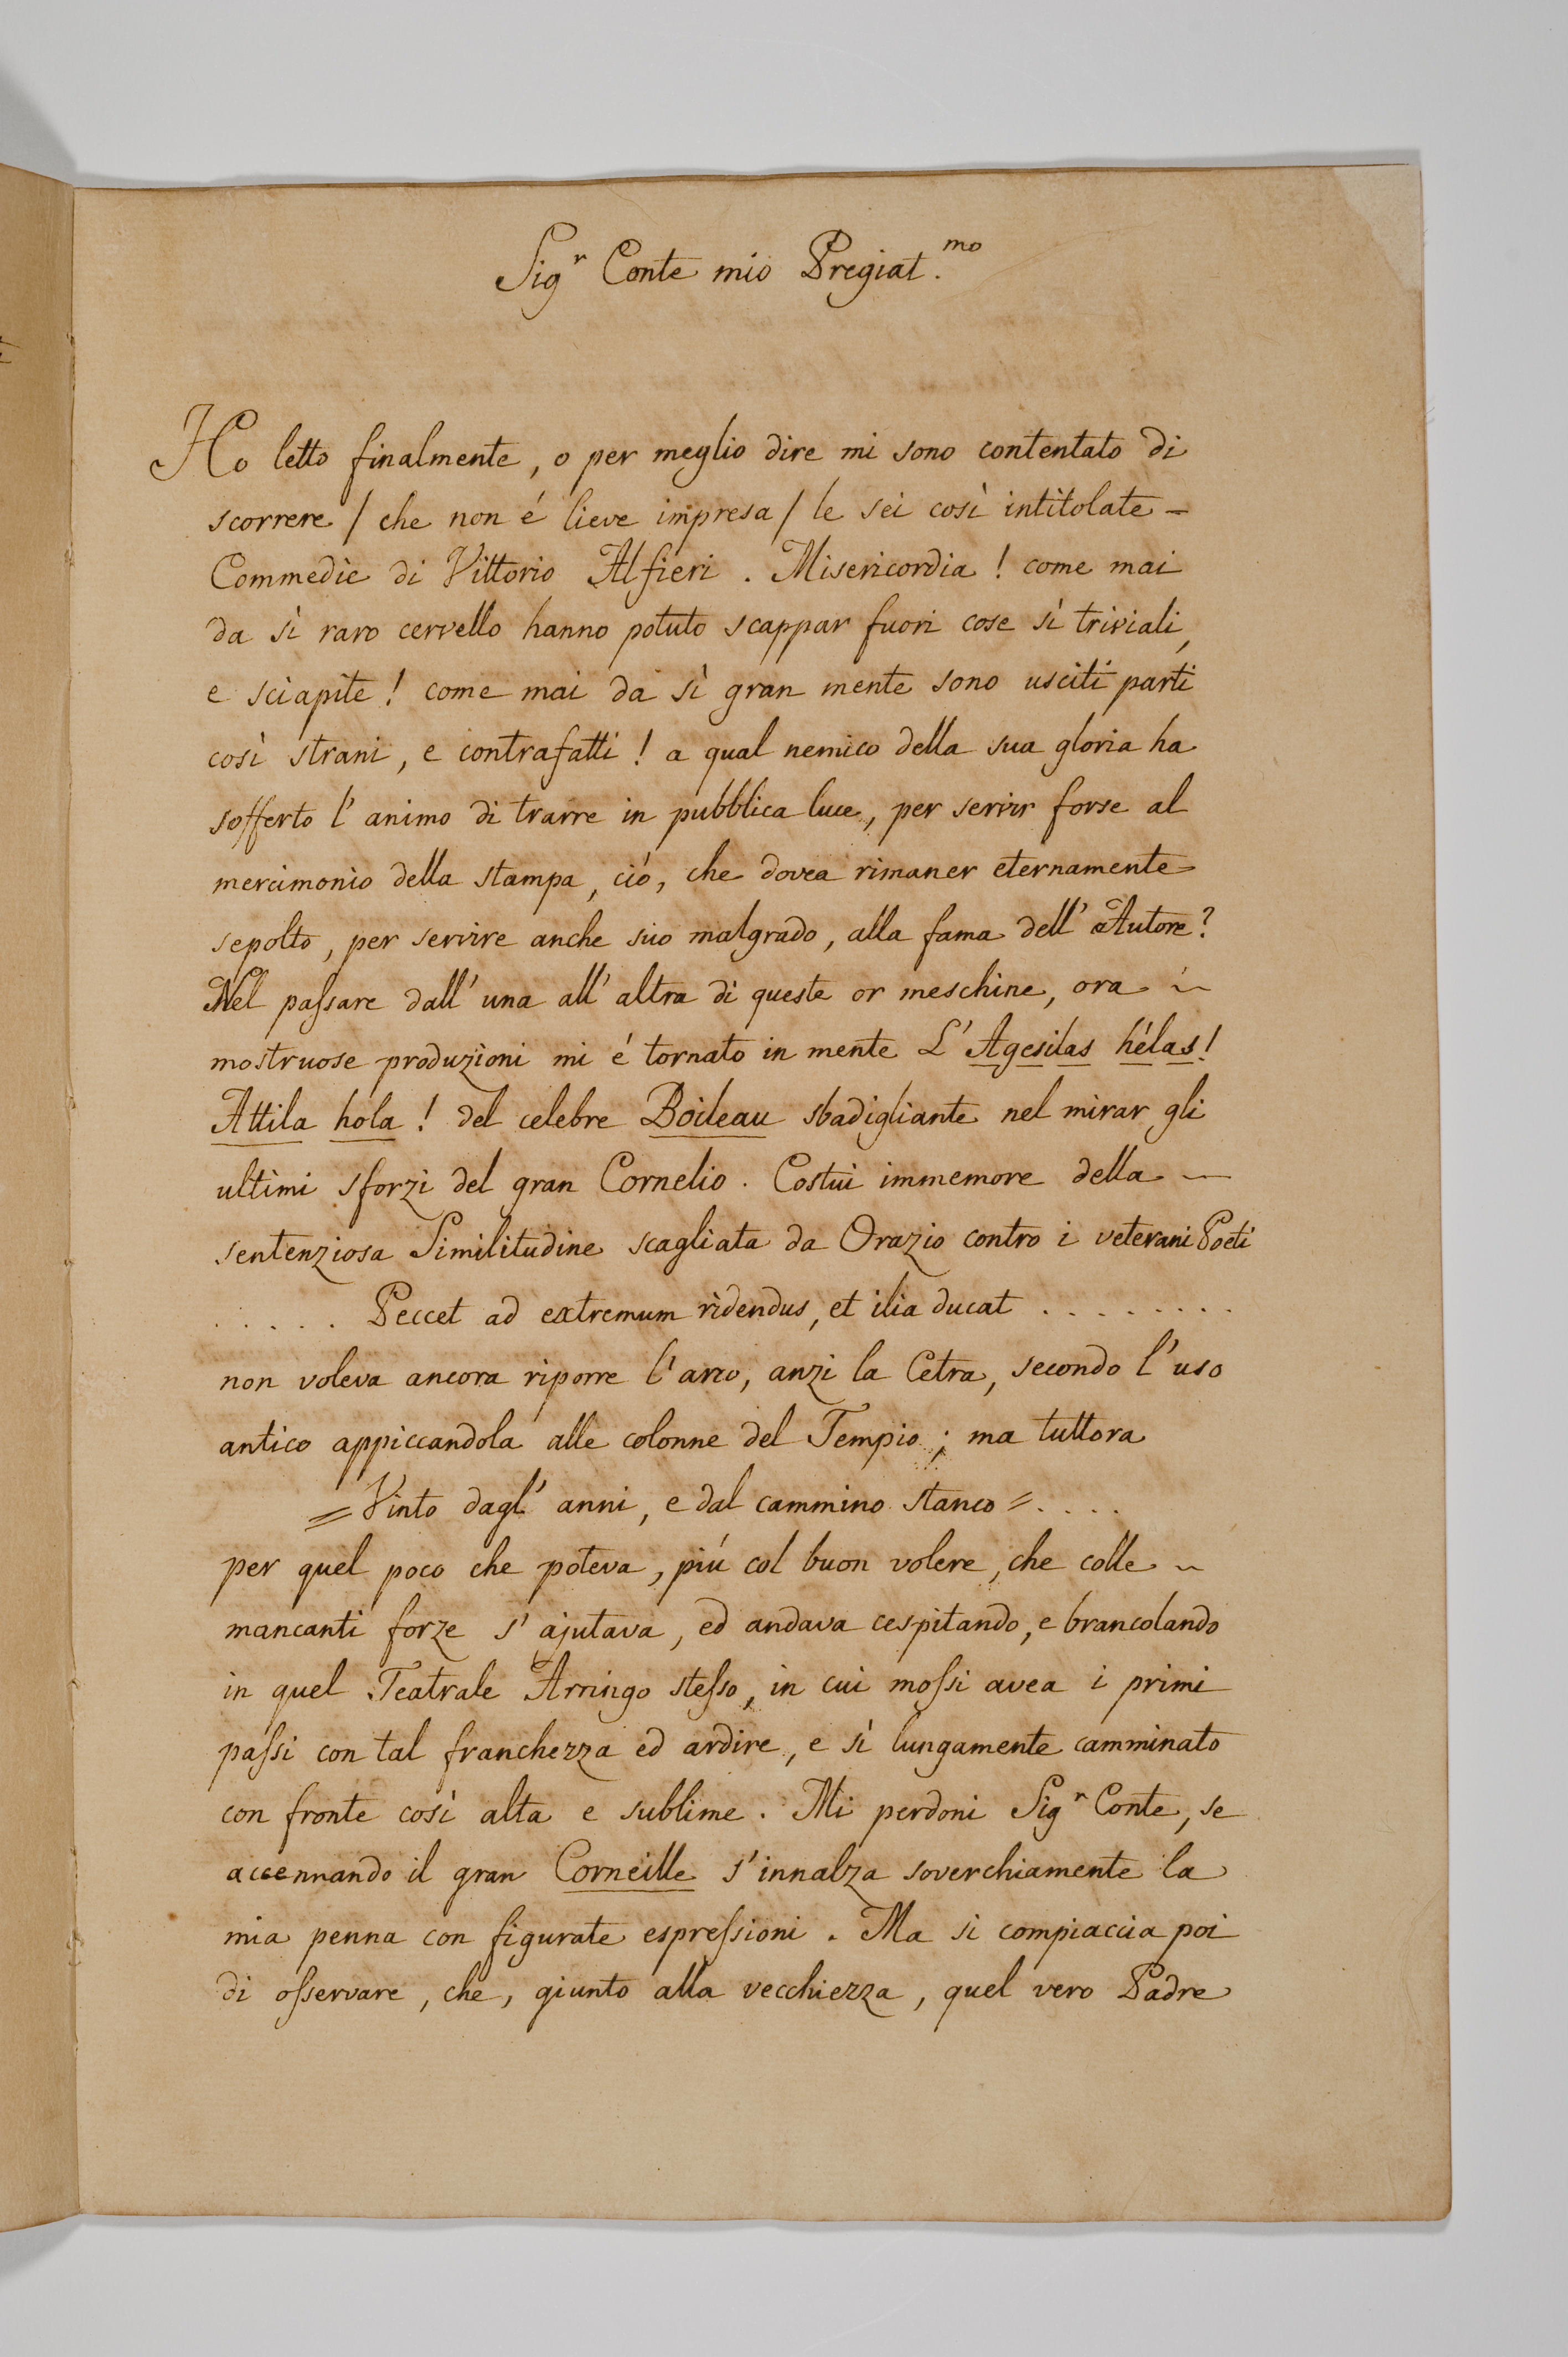 Sig.r Conte mio Pregiat.mo
Ho letto finalmente, o per meglio dire mi sono contentato di
scorrere / che non é lieve impresa / le sei così intitolate –
Commedie di Vittorio Alfieri. Misericordia! come mai
da sì raro cervello hanno potuto scappar fuori cose sì triviali,
e sciapite! come mai da sì gran mente sono usciti parti
così strani, e contrafatti! a qual nemico della sua gloria ha
sofferto l'animo di trarre in pubblica luce, per servir forse al
mercimonio della stampa, ció, che dovea rimaner eternamente
sepolto, per servire anche suo malgrado, alla fama dell'Autore?
Nel passare dall'una all'altra di queste or meschine, ora ~
mostruose produzioni mi é tornato in mente L'Agesilas hélas!
Attila hola! del celebre Boileau sbadigliante nel mirar gli
ultimi sforzi del gran Cornelio. Costui immemore della ~
sentenziosa Similitudine scagliata da Orazio contro i veterani Poeti
. . . . . Peccet ad extremum ridendus, et ilia ducat . . . . . . . .
non voleva ancora riporre l'arco, anzi la Cetra, secondo l'uso
antico appiccandola alle colonne del Tempio; ma tuttora
= Vinto dagl'anni, e dal cammino stanco = . . . .
per quel poco che poteva, piú col buon volere, che colle ~
mancanti forze s'ajutava, ed andava cespitando, e brancolando
in quel Teatrale Arringo stesso, in cui mossi avea i primi
passi con tal franchezza ed ardire, e sì lungamente camminato
con fronte così alta e sublime. Mi perdoni Sig.r Conte, se
accennando il gran Corneille s'innalza soverchiamente la
mia penna con figurate espressioni. Ma si compiaccia poi
di osservare, che, giunto alla vecchiezza, quel vero Padre